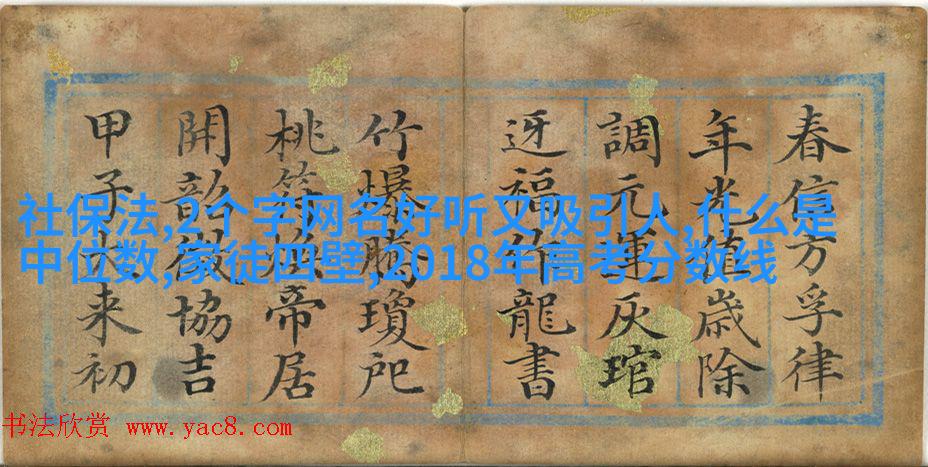 春信方孚律
年光歲除
調元運灰琯
迓福龍書
竹爆騰瓊戺
桃符煥帝居
開韶徵協吉
甲子來初
社保法,2个字网名好听又吸引人,什么是
中位数,家徒四壁,2018年高考分数线
书法欣赏 www.yac8.com